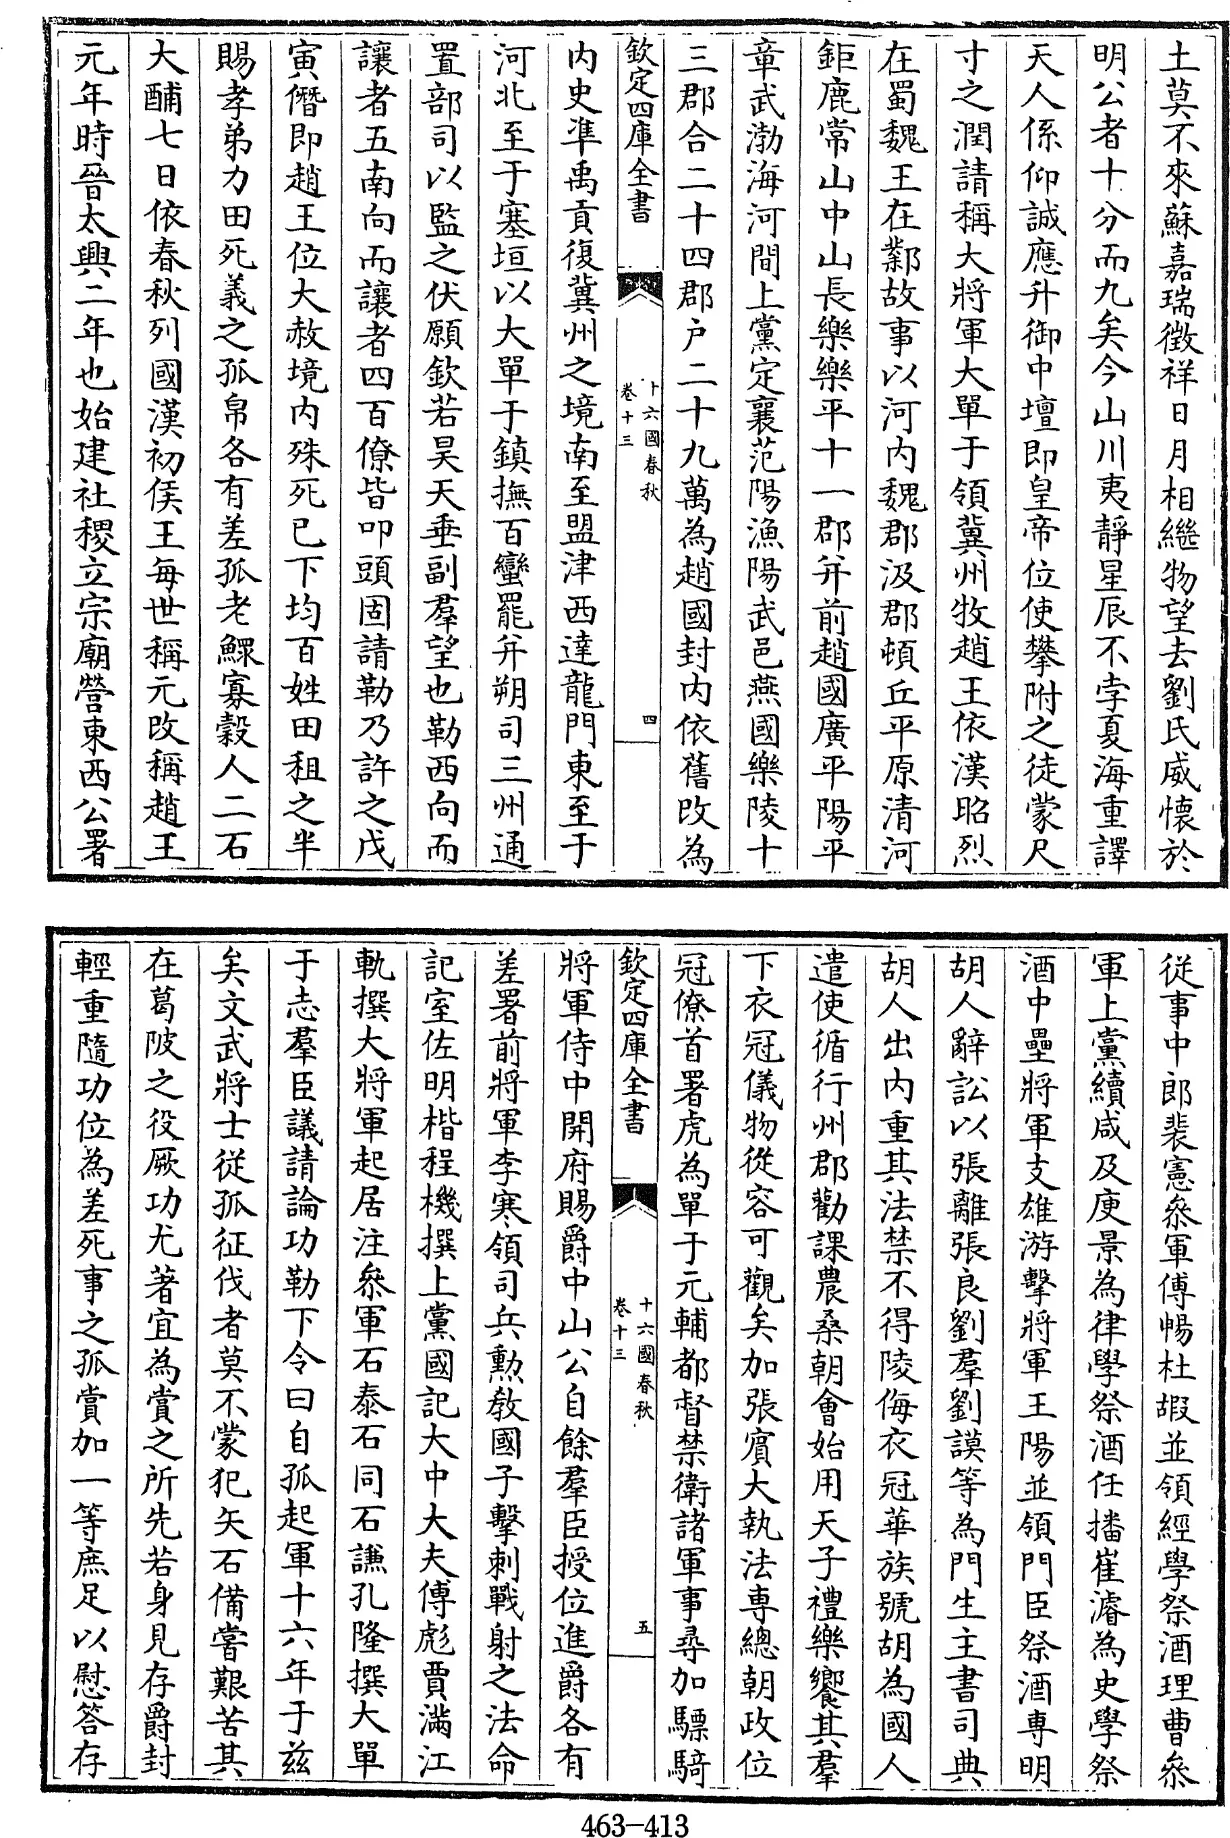 土莫不來蘇嘉瑞徵祥日月相繼物望去劉氏威懷於
明公者十分而九矣今山川夷靜星辰不孛夏海重譯
天人係仰誠應升御中壇即皇帝位使攀附之徒蒙尺
寸之潤請稱大將軍大單于領冀州牧趙王依漢昭烈
在蜀魏王在鄴故事以河内魏郡汲郡頓丘平原清河
鉅鹿常山中山長樂樂平十一郡并前趙國廣平陽平
章武渤海河間上黨定襄范陽漁陽武邑燕國樂陵十
三郡合二十四郡户二十九萬為趙國封内依舊改為
欽定四庫全書
十六國春秋
卷十三
四
内史凖禹貢復冀州之境南至盟津西達龍門東至于
河北至于塞垣以大單于鎮撫百蠻罷并朔司三州通
置部司以監之伏願欽若昊天垂副羣望也勒西向而
讓者五南向而讓者四百僚皆叩頭固請勒乃許之戊
寅僭即趙王位大赦境内殊死已下均百姓田租之半
賜孝弟力田死義之孤帛各有差孤老鰥寡穀人二石
大酺七日依春秋列國漢初侯王每世稱元改稱趙王
元年時晉太興二年也始建社稷立宗廟營東西公署
從事中郎裴憲叅軍傅暢杜嘏並領經學祭酒理曹叅
軍上黨續咸及庾景為律學祭酒任播崔濬為史學祭
酒中壘將軍支雄游擊將軍王陽並領門臣祭酒專明
胡人辭訟以張離張良劉羣劉謨等為門生主書司典
胡人出内重其法禁不得陵侮衣冠華族號胡為國人
遣使循行州郡勸課農桑朝會始用天子禮樂饗其羣
下衣冠儀物從容可觀矣加張賓大執法専總朝政位
冠僚首署虎為單于元輔都督禁衛諸軍事尋加驃騎
欽定四庫全書
十六國春秋
卷十三
五
將軍侍中開府賜爵中山公自餘羣臣授位進爵各有
差署前將軍李寒領司兵勲教國子擊刺戰射之法命
記室佐明楷程機撰上黨國記大中大夫傅彪賈滿江
軌撰大將軍起居注叅軍石泰石同石謙孔隆撰大單
于志羣臣議請論功勒下令曰自孤起軍十六年于兹
矣文武將士從孤征伐者莫不蒙犯矢石備嘗艱苦其
在葛陂之役厥功尤著宜為賞之所先若身見存爵封
輕重隨功位為差死事之孤賞加一等庶足以慰答存
463-413